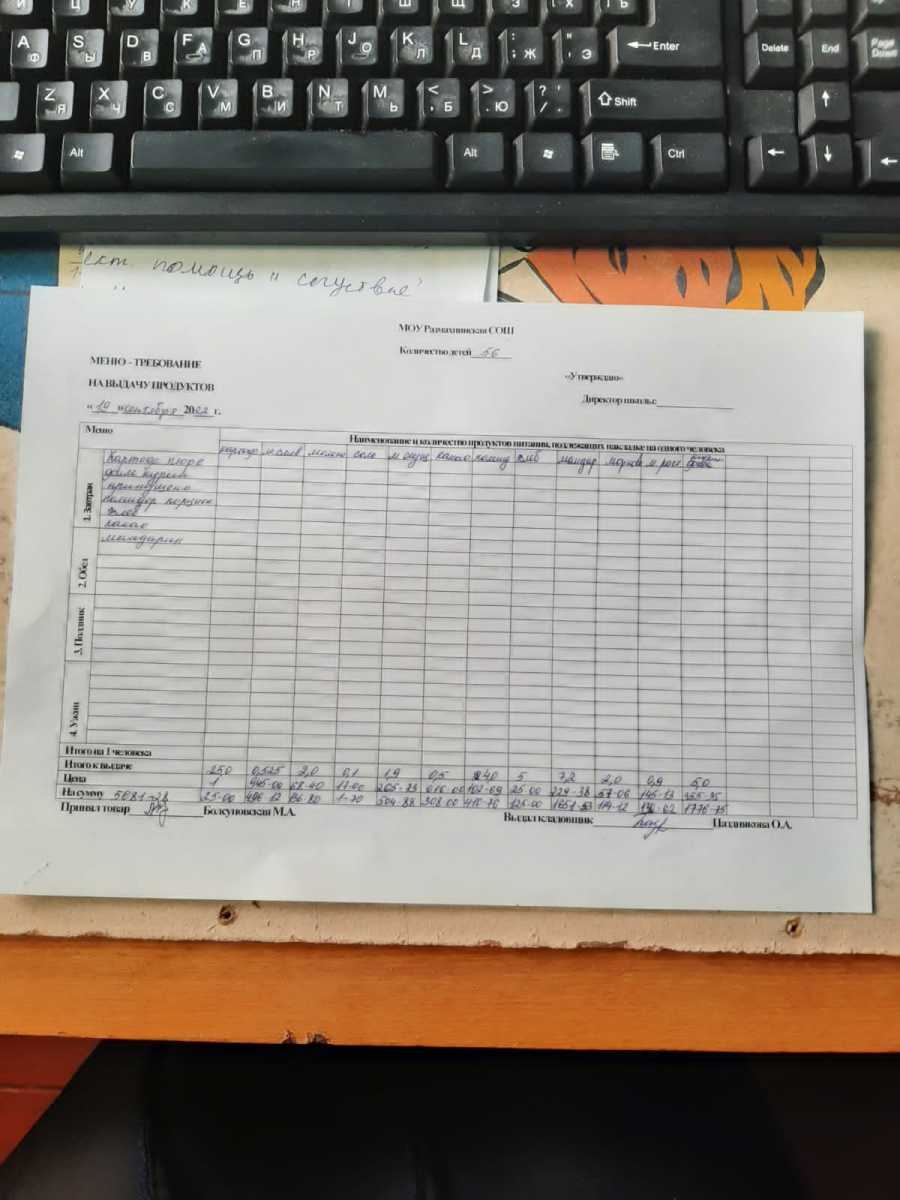 A Ф S Ы D В F А G П H Р J О K Л L Д : ; Ж " ' Э Enter Delete End Page Down
Z Я X Ч C С V М B И N Т M Ь < , Б > . Ю ? / Shift
Alt Alt Ctrl
помощь и
МОУ Размахнинская СОШ
Количество детей 56
МЕНЮ - ТРЕБОВАНИЕ
НА ВЫДАЧУ ПРОДУКТОВ
«Утверждаю»
Директор школы:
« 19 » сентября 2022 г.
Меню Наименование и количество продуктов питания, подлежащих накладке на одного человека
картоф м слив молоко соль какао помид хлеб мандар морков м раст
1. Завтрак
Картофе пюре
филе курин
припущено
помидор порцион
хлеб
какао
мандарин
2. Обед
3. Полдник
4. Ужин
Итого на 1 человека
Итого к выдаче 25,0 0,525 2,0 0,1 1,9 0,5 2,40 5 7,2 2,0 0,9 5,0
Цена 1 945-00 68-40 17-00 265-73 616-00 25-00 229-38 57-06 145-13 355-35
На сумму 5081-28 25-00 496-12 136-80 1-70 504-88 308-00 125-00 1651-53 114-12 1776-75
Принял товар Болсуновская М.А. Выдал кладовщик Паздникова О.А.